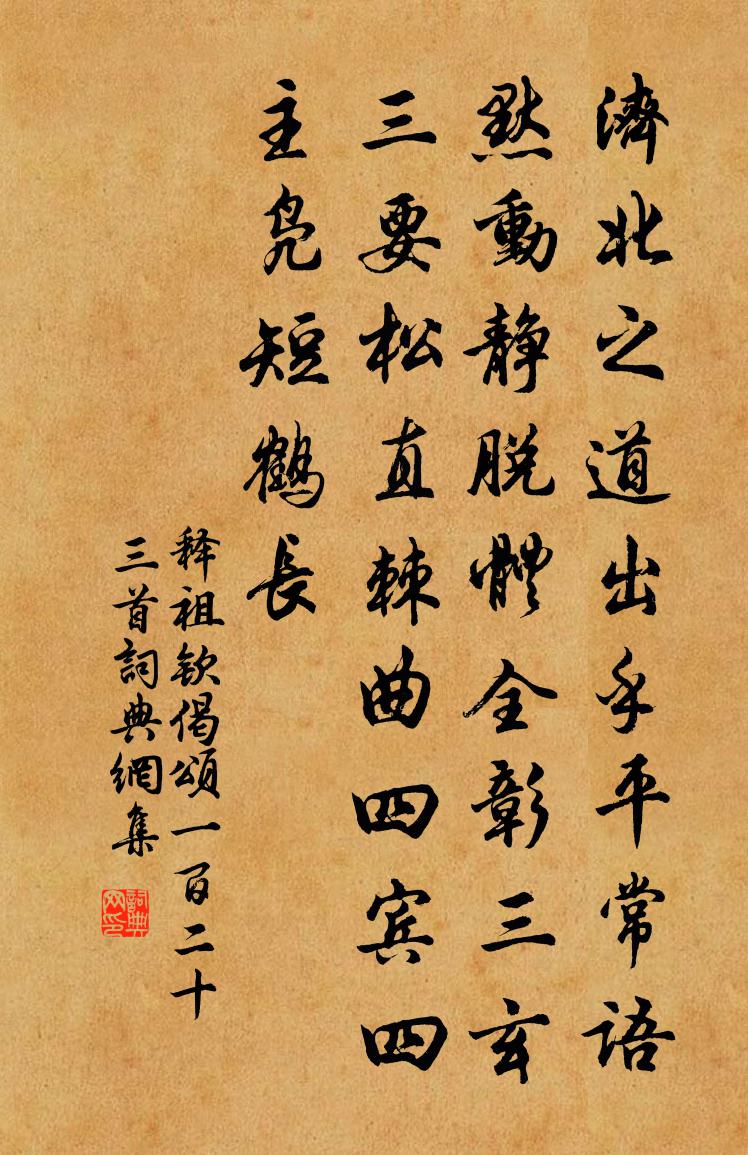 濟北之道出乎平常語
默動靜脫體全彰三玄
三要松直棘曲四賓四
主鳧短鶴長
释祖钦偈頌一百二十
三首詞典網集
詞典网印